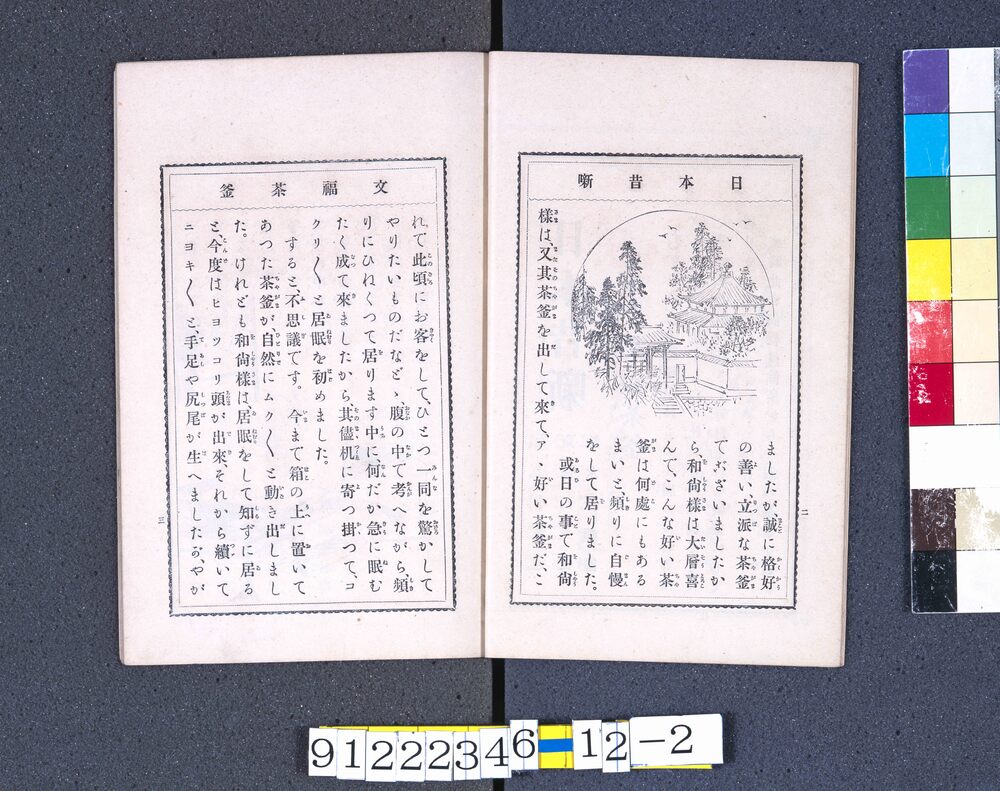 日本昔噺
ましたが、誠に格好
の善い、立派な茶釜
でございましたか
ら、和尚樣は大層喜
んで、こんな好い茶
釜は何處にもある
まいと、頻りに自慢
をして居りました。
或日の事で和尚
樣は、又其茶釜を出して來て、アヽ好い茶釜だ、こ
二
文福茶釜
れで此頃にお客をして、ひとつ一同を驚かして
やりたいものだなどゝ、腹の中で考へながら、頻
りにひねくつて居ります中に、何だか急に眠む
たく成て來ましたから、其儘机に寄つ掛つて、コ
クリ〱と居眠を初めました。
すると、不思議です。今まで箱の上に置いて
あつた茶釜が、自然にムク〱と動き出しまし
た。けれども和尚樣は居眠をして知ずに居る
と、今度はヒヨツコリ頭が出來、それから續いて
ニヨキ〱と、手足や尻尾が生へましたが、やが
三
91222346 12-2